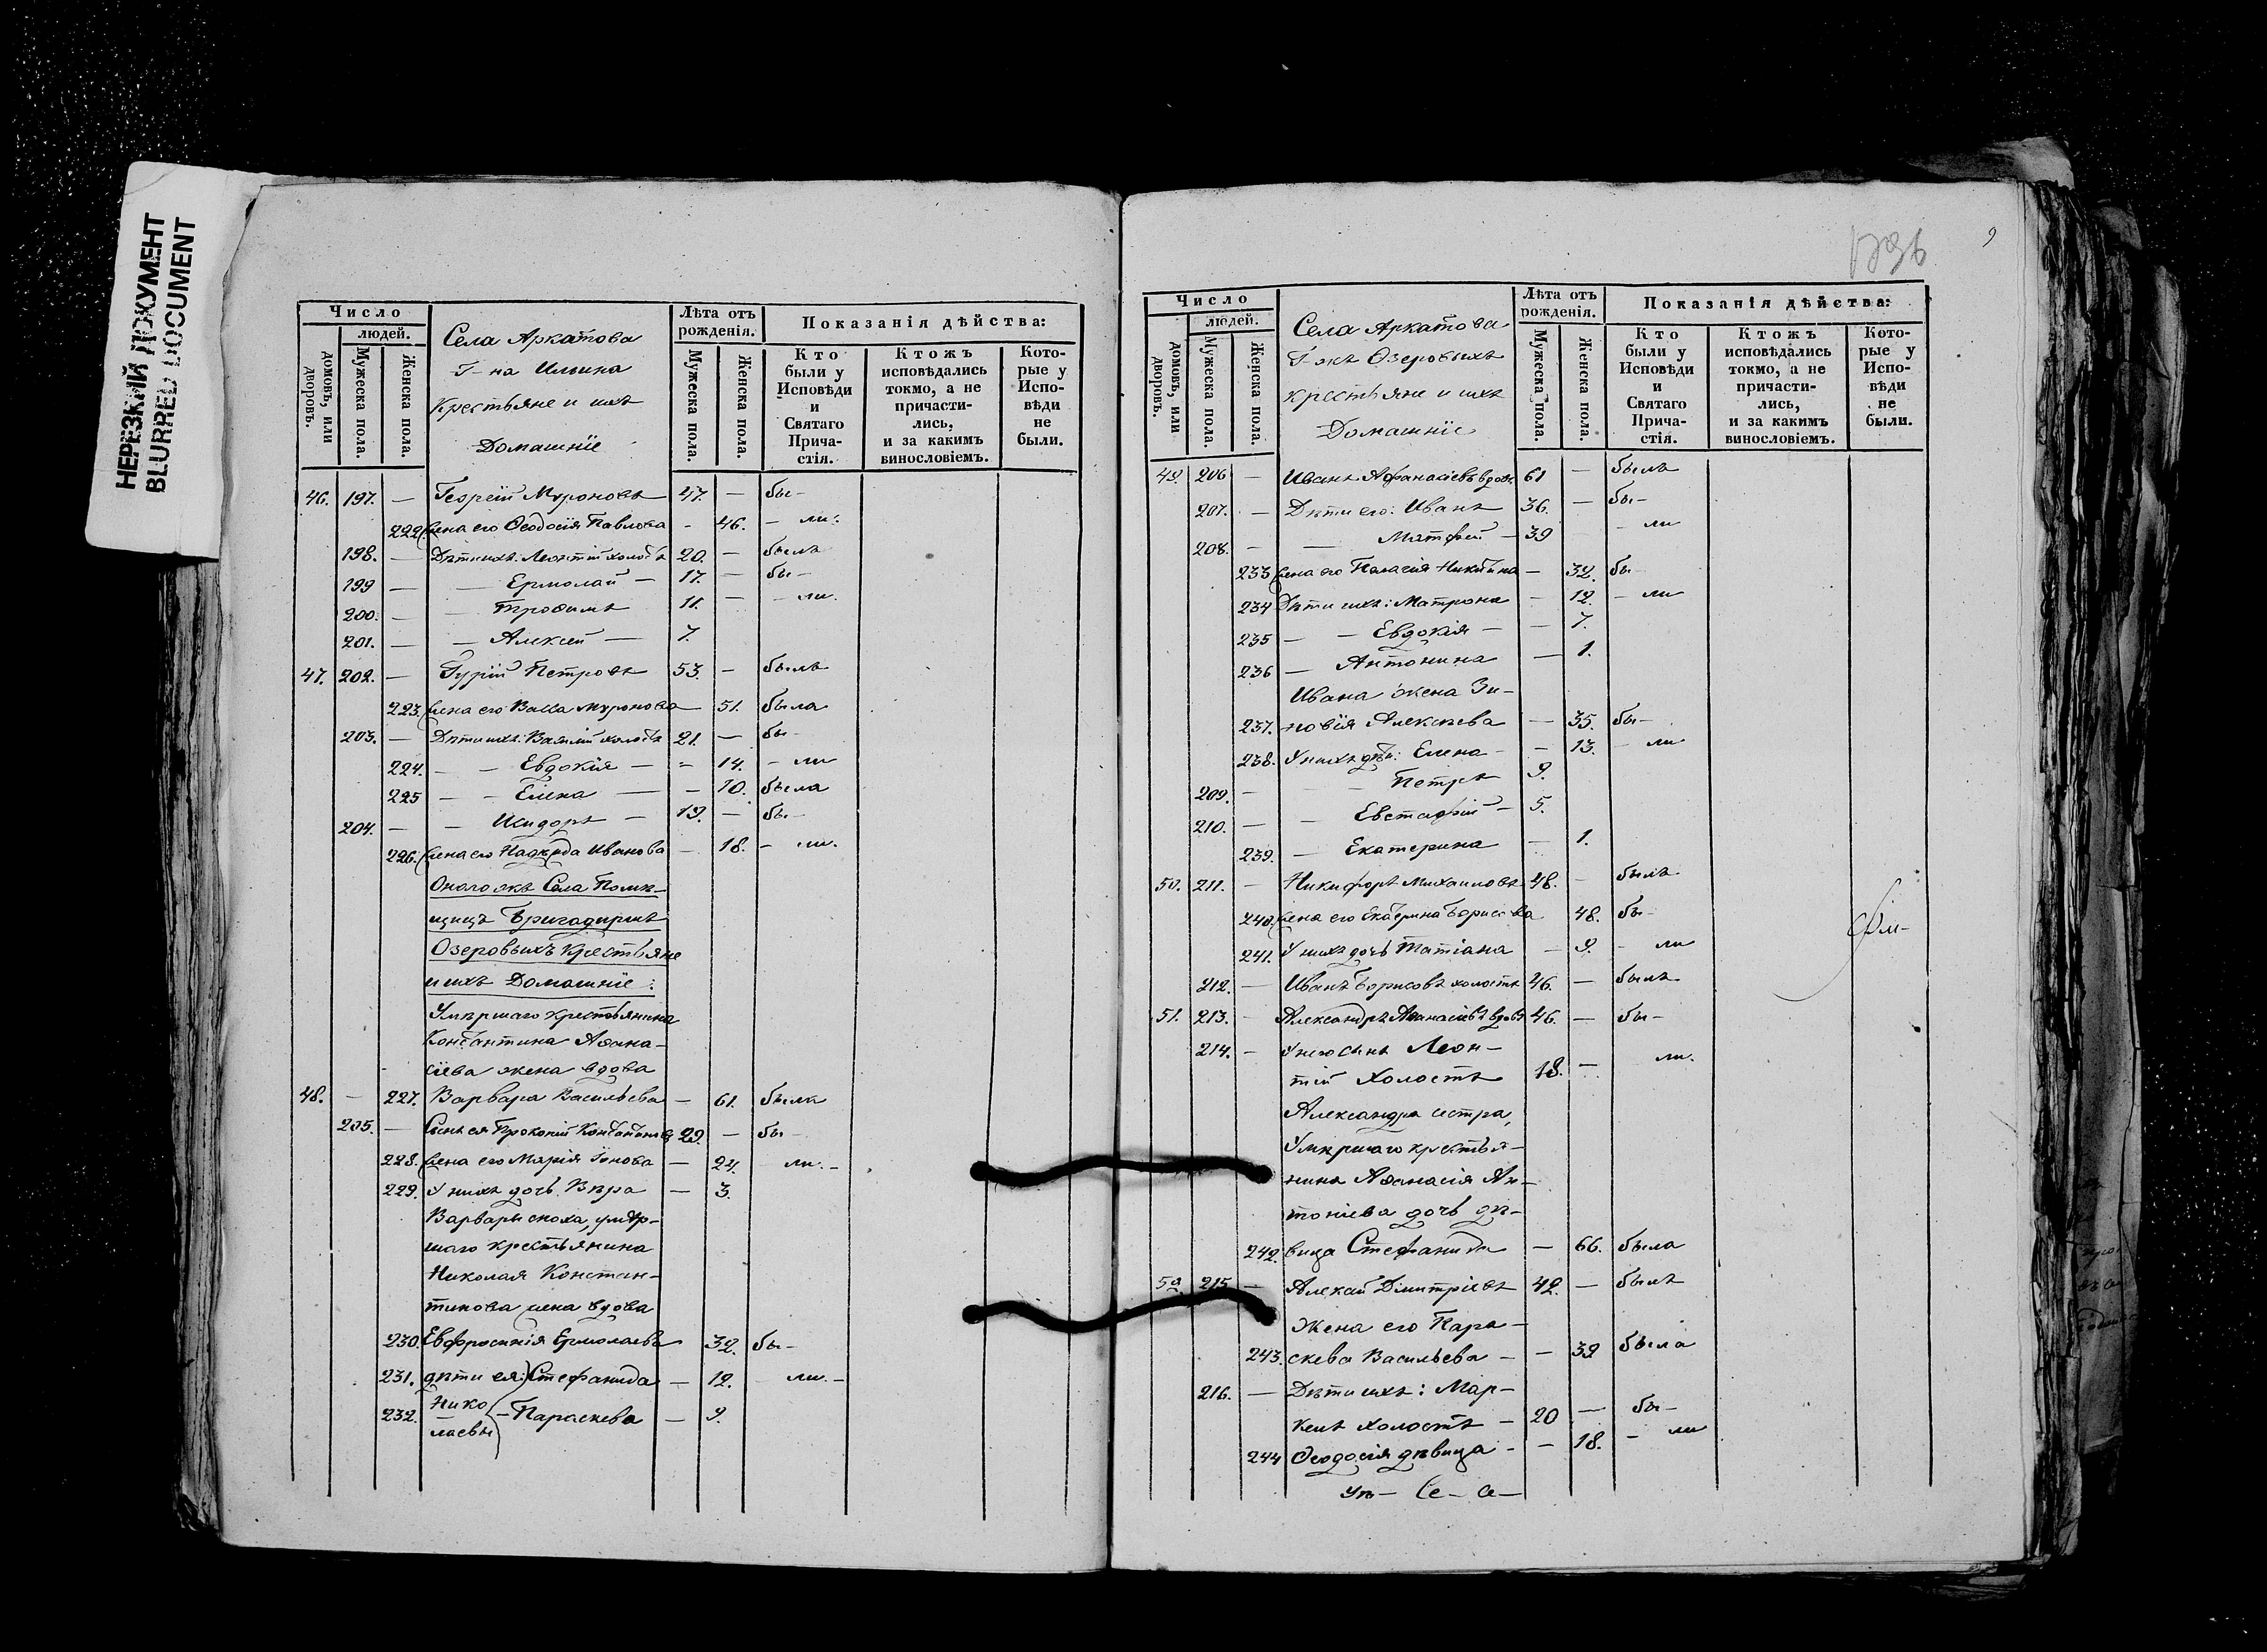 НЕРЕЗКИЙ ДОКУМЕНТ
BLURRED DOCUMENT
Число
людей.
домовъ, или дворовъ.
Мужеска пола.
Женска пола.
Села Аркатова
Г-на Ильина
Крестьяне и ихъ
Домашніе
Лѣта отъ рожденія.
Мужеска пола.
Женска пола.
Показанія дѣйства:
Кто были у Исповѣди и Святаго Прича-стія.
Ктожъ исповѣдались токмо, а не причасти-лись, и за какимъ винословіемъ.
Кото-рые у Испо-вѣди не были.
46. 197. — Георгій Мѵроновъ 47. — бы-
222. Жена его Ѳеодосія Павлова - 46. - ли.
198. — Дѣти ихъ: Леонтій холостъ 20. — былъ
199 — — Ермолай — 17. — бы-
200. — — Трофимъ 11. — - ли.
201. — — Алексѣй — 7.
47. 202. — Гурій Петровъ 53. - былъ
223. Жена его Васса Мѵронова — 51. была
203. — Дѣти ихъ: Василій холостъ 21. — бы-
224. — — Евдокія — - 14. - ли
225 — — Елена — - 10. была
204. — — Исидоръ — 19. — бы-
226. Жена его Надежда Иванова — 18. - ли.
Онаго жъ Села Помѣ-
щицъ Бригадиршъ
Озеровыхъ Крестьяне
и ихъ Домашніе:
Умершаго крестьянина
Константина Аѳана-
сіева жена вдова
48. - 227. Варвара Васильева — 61. была
205. — Сынъ ея Прокопій Константиновъ 29. — бы-
228. Жена его Марія Іонова — 24. ли. -
229. У нихъ дочь Вѣра — 3.
Варвары сноха, умер-
шаго крестьянина
Николая Констан-
тинова жена вдова
230. Евфросинія Ермолаева 32. бы-
231. дѣти ея: Стефанида — 12. - ли. -
232. Нико
лаевы - Параскева — 9.
9
Число
людей.
домовъ, или дворовъ.
Мужеска пола.
Женска пола.
Села Аркатова
Г-жъ Озеровыхъ
крестьяне и ихъ
Домашніе
Лѣта отъ рожденія.
Мужеска пола.
Женска пола.
Показанія дѣйства:
Кто были у Исповѣди и Святаго Прича-стія.
Ктожъ исповѣдались токмо, а не причасти-лись, и за какимъ винословіемъ.
Кото-рые у Испо-вѣди не были.
49. 206 — Иванъ Афанасіевъ вдовъ 61 — былъ
207. — Дѣти его: Иванъ 36. — бы-
208. — — Матфей — 39 - ли
233 Жена его Пелагія Никитина — 32. бы-
234 Дѣти ихъ: Матрона — 12. - ли
235 — — Евдокія — — 7.
236 — Антонина — 1.
Ивана жена Зи-
237. новія Алексѣева — 35. бы-
238. У нихъ дѣти: Елена - — 13. - ли
209. — — Петръ 9.
210. — — Евстафій — 5.
239. — Екатерина — 1.
50. 211. — Никифоръ Михаиловъ 48. - былъ
240. Жена его Екатерина Борисова 48. бы-
241. У нихъ дочь Татіана — 9. - ли
212. — Иванъ Борисовъ холостъ 46. — былъ
51. 213. — Александръ Аѳанасіевъ вдовъ 46. — бы-
214. — У него сынъ Леон-
тій Холостъ 18. — ли.
Александра сестра,
Умершаго крестья-
нина Аѳанасія Ан-
тоніева дочь дѣ-
242. вица Стефанида — 66. была
52. 215 — Алексѣй Димитріевъ 42. — былъ
Жена его Пара-
243. скева Васильева — — 39 была
216. — Дѣти ихъ: Мар-
келъ холостъ — 20 — бы-
244 Ѳеодосія дѣвица - — 18. - ли